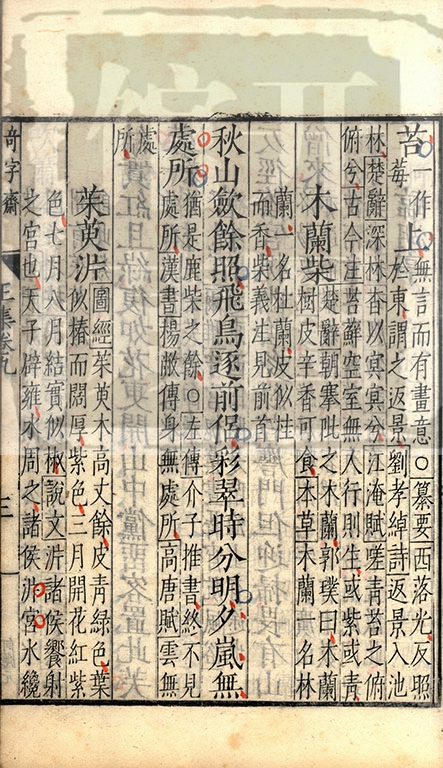 苔一作莓上無言而有畫意○纂要西落光反照
於東謂之返景劉孝綽詩返景入池
林楚辭深林杳以冥冥兮江淹賦嗟青苔之俯
俯兮古今注苔蘚空室無人行則生或紫或青
木蘭柴楚辭朝搴阰之木蘭郭璞曰木蘭
樹皮辛香可食本草木蘭一名林
蘭一名杜蘭皮似桂
而香柴義注見前首
秋山歛餘照飛鳥逐前侶彩翠時分明夕嵐無
處所猶是鹿柴之餘○左傳介子推書終不見
處所漢書楊敞傳身無處所高唐賦雲無
處
所
茱萸沜圖經茱萸木高丈餘皮青綠色葉
似椿而闊厚紫色三月開花紅紫
色七月八月結實似椒說文沜諸侯饗射
之宮也天子辟雍水周之諸侯沜宮水纔
奇字齋
王集卷九
三